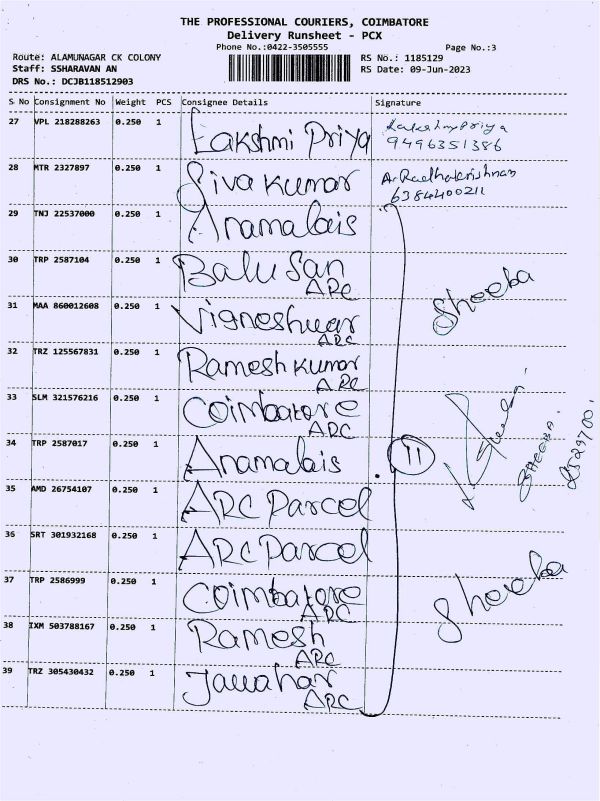 THE PROFESSIONAL COURIERS, COIMBATORE
Delivery Runsheet - PCX
Phone No.:0422-3505555 Page No.:3
Route: ALAMUNAGAR CK COLONY RS No.: 1185129
Staff: SSHARAVAN AN RS Date: 09-Jun-2023
DRS No.: DCJB118512903
S No Consignment No Weight PCS Consignee Details Signature
27 VPL 218288263 0.250 1 Lakshmi Priya Lakshmipriya
9496351386
28 MTR 2327897 0.250 1 Siva Kumar A. Radhakrishnan
6384400211
29 TNJ 22537000 0.250 1 Anamalais
30 TRP 2587104 0.250 1 Balu San
ARC
Sheeba
31 MAA 860012608 0.250 1 Vigneshwar
ARC
32 TRZ 125567831 0.250 1 Ramesh Kumar
ARC
33 SLM 321576216 0.250 1 Coimbatore
ARC
34 TRP 2587017 0.250 1 Anamalais 11
SHEEBA
35 AMD 26754107 0.250 1 ARC Parcel
36 SRT 301932168 0.250 1 ARC Parcel
37 TRP 2586999 0.250 1 Coimbatore
ARC
Sheeba
38 IXM 503788167 0.250 1 Ramesh
ARC
39 TRZ 305430432 0.250 1 Jawahar
ARC